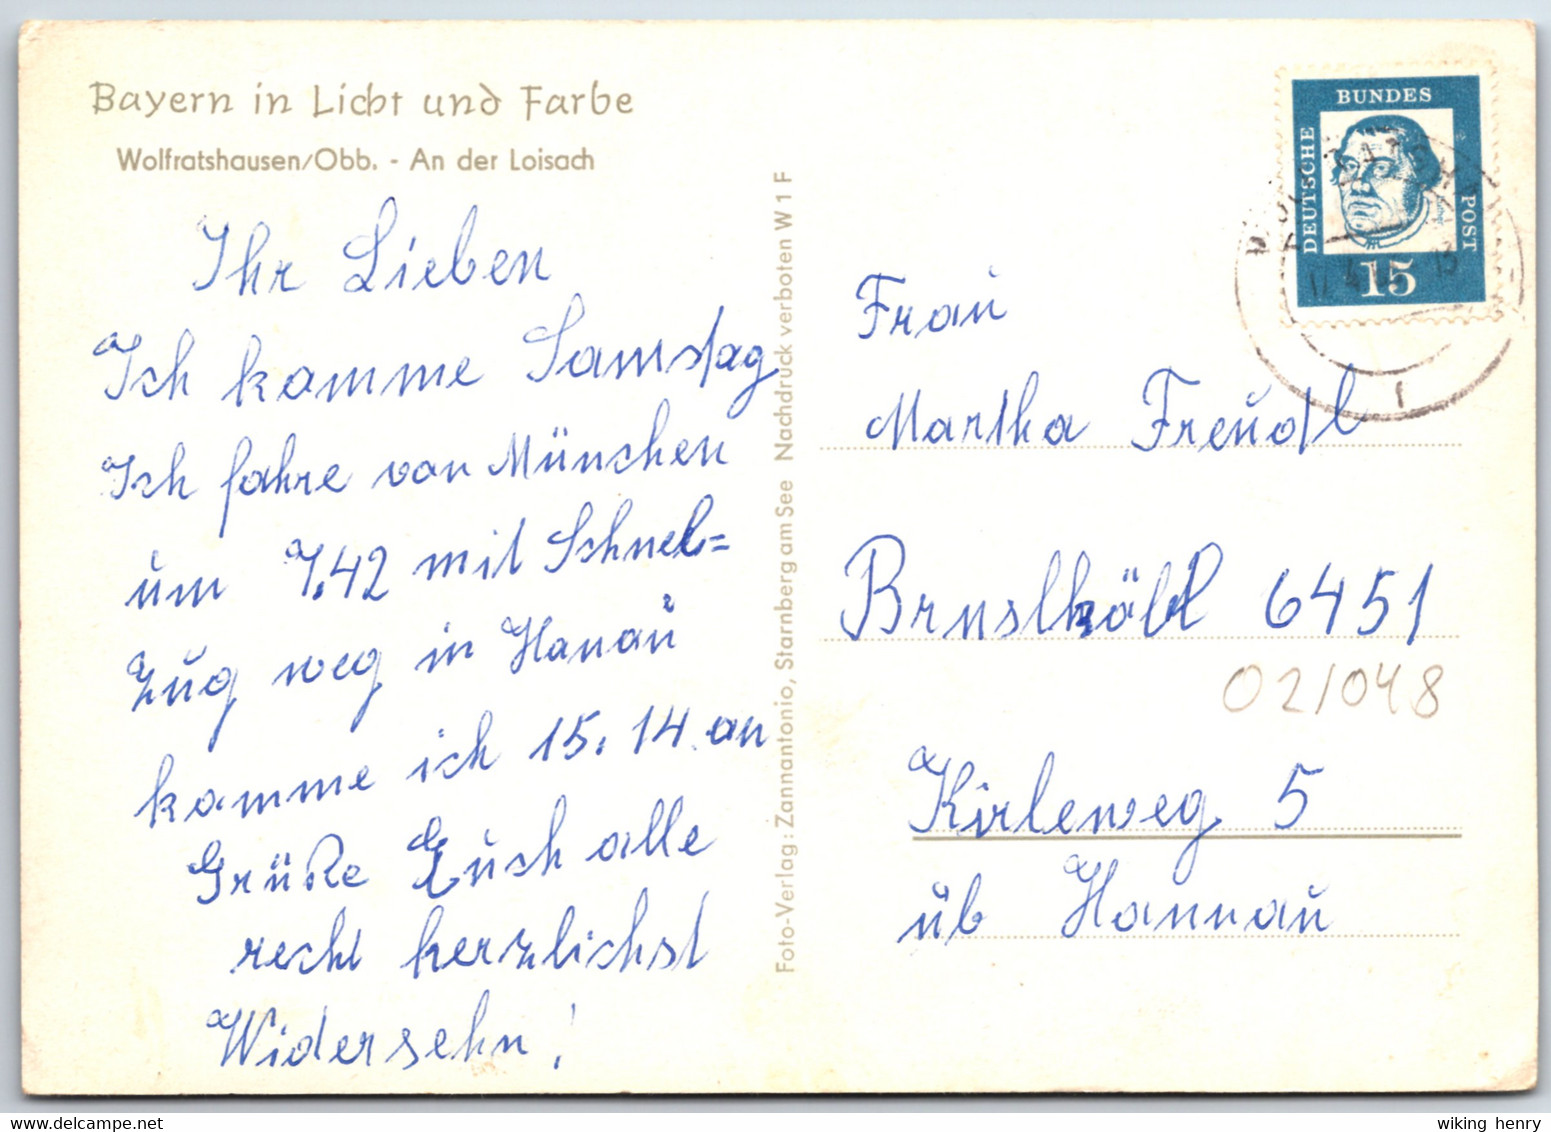 Bayern in Licht und Farbe
Wolfratshausen/Obb. - An der Loisach
Ihr Lieben
Ich komme Samstag
Ich fahre von München
um 7.42 mit Schnel=
Zug weg in Hanau
komme ich 15.14 an
Grüße Euch alle
recht herzlichst
Widersehn!
Foto-Verlag: Zannantonio, Starnberg am See Nachdruck verboten W 1 F
DEUTSCHE
BUNDES
POST
15
Frau
Martha Freudl
6451
02/048
Kirleweg 5
üb Hannau
wiking henry